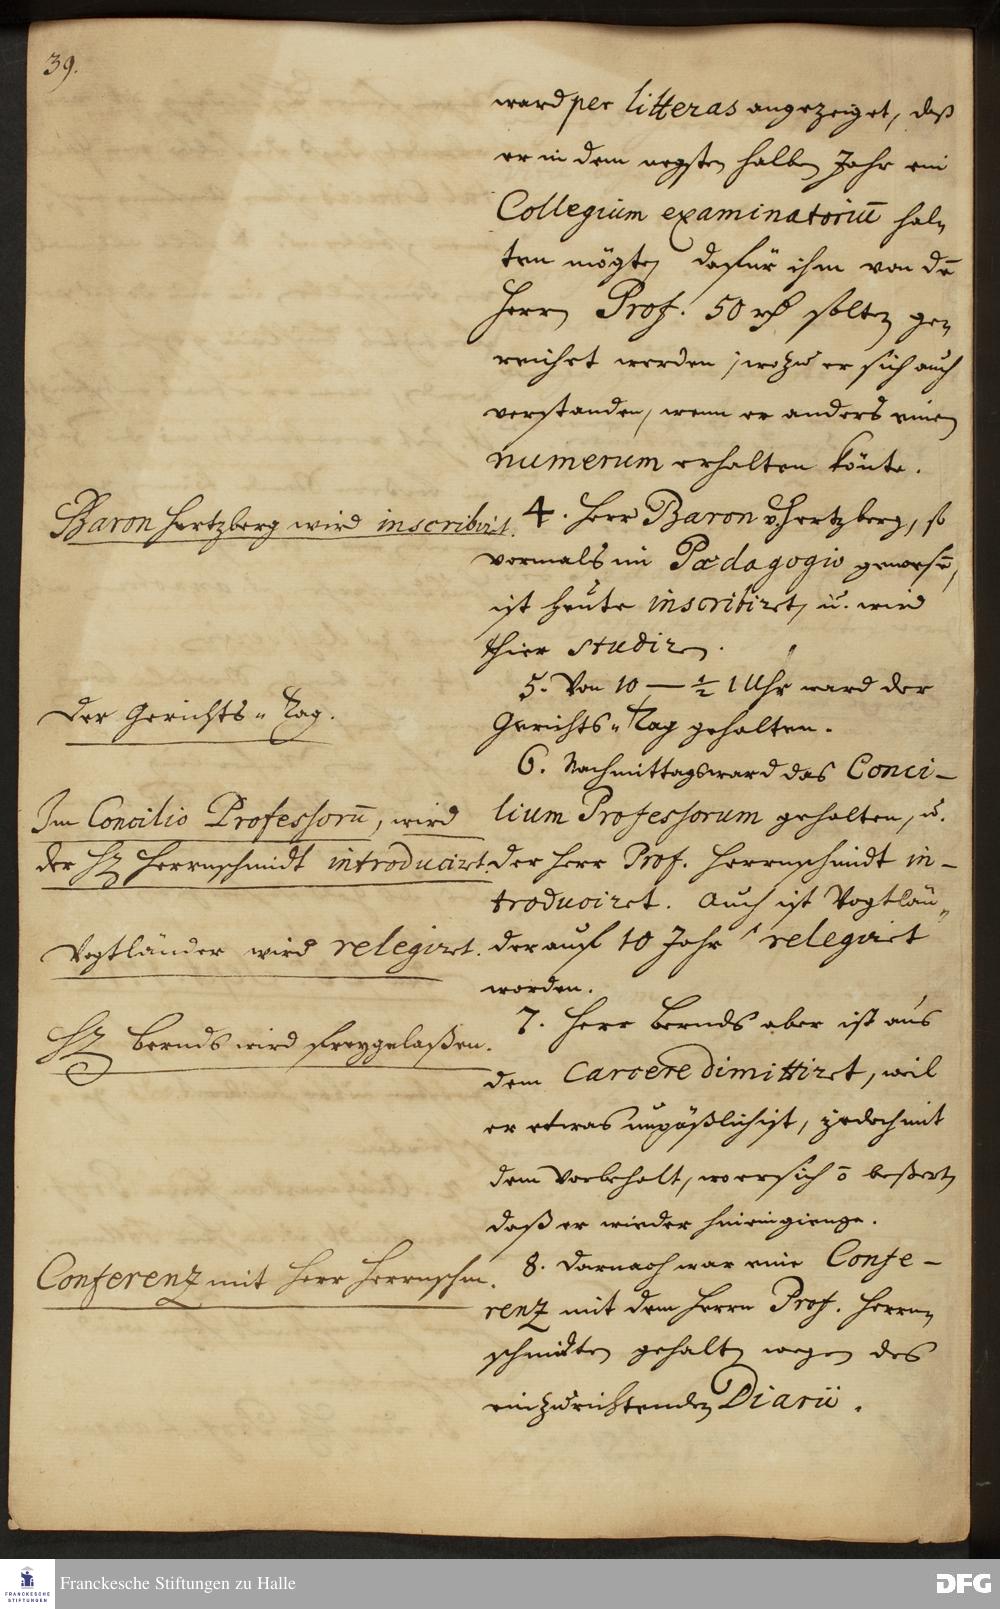 39.
ward per litteras angezeiget, daß
er in dem negsten halben Jahr ein
Collegium examinatoriū hal„
ten mögte, dafür ihm von dē
Herrn Prof. 50 rth solten ge„
reichet werden; wozu er sich auch
verstanden, wenn er anders einen
numerum erhalten könte.
Baron Hertzberg wird inscribiret.
4. Herr Baron v. Hertzberg, so
vormals im Pædagogio gewesē,
ist heute inscribiret, u. wird
hier studiren.
Der Gerichts„Tag.
5. Von 10 — ½ 1 Uhr ward der
Gerichts„Tag gehalten.
Im Concilio Professorū, wird
der H. Herrnschmidt introduciret.
6. Nachmittags ward das Conci-
lium Professorum gehalten, u.
der Herr Prof. Herrnschmidt in-
troduciret. Auch ist Vogtlän„
Vogtländer wird relegiret.
der auf 10 Jahr relegiret
worden.
H. Bernds wird freygelaßen.
7. Herr Bernds aber ist aus
dem Carcere dimittiret, weil
er etwas unpäßlich ist, jedoch mit
dem Vorbehalt, wo er sich ō beßert,
daß er wieder hineingienge.
Conferenz mit Herr Herrnschm.
8. Darnach war eine Confe-
renz mit dem Herrn Prof. Herrn„
schmidten gehalten wegen des
einzurichtenden Diarii.
Franckesche Stiftungen zu Halle
FRANCKESCHE
STIFTUNGEN
DFG